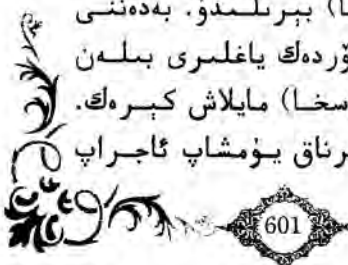 بېرىلىدۇ. بەدەننى
ياغلىرى بىلەن
مايلاش كېرەك.
يۇمشاپ ئاجراپ
601